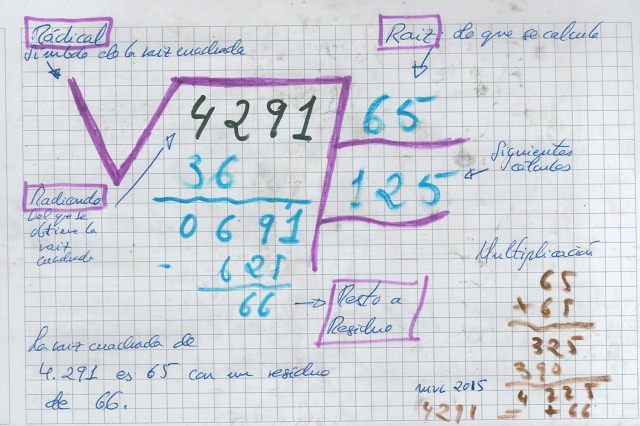 Radical
Símbolo de la raiz cuadrada
Raiz: Lo que se calcula
4291
65
36
125
Siguientes
cálculos
Radicando
Del que se
obtiene la
raiz
cuadrada
0691
- 625
66
Resto o
Residuo
Multiplicación
65
+ 65
325
390
4225
+ 66
4291 =
La raiz cuadrada de
4.291 es 65 con un residuo
de 66.
2015